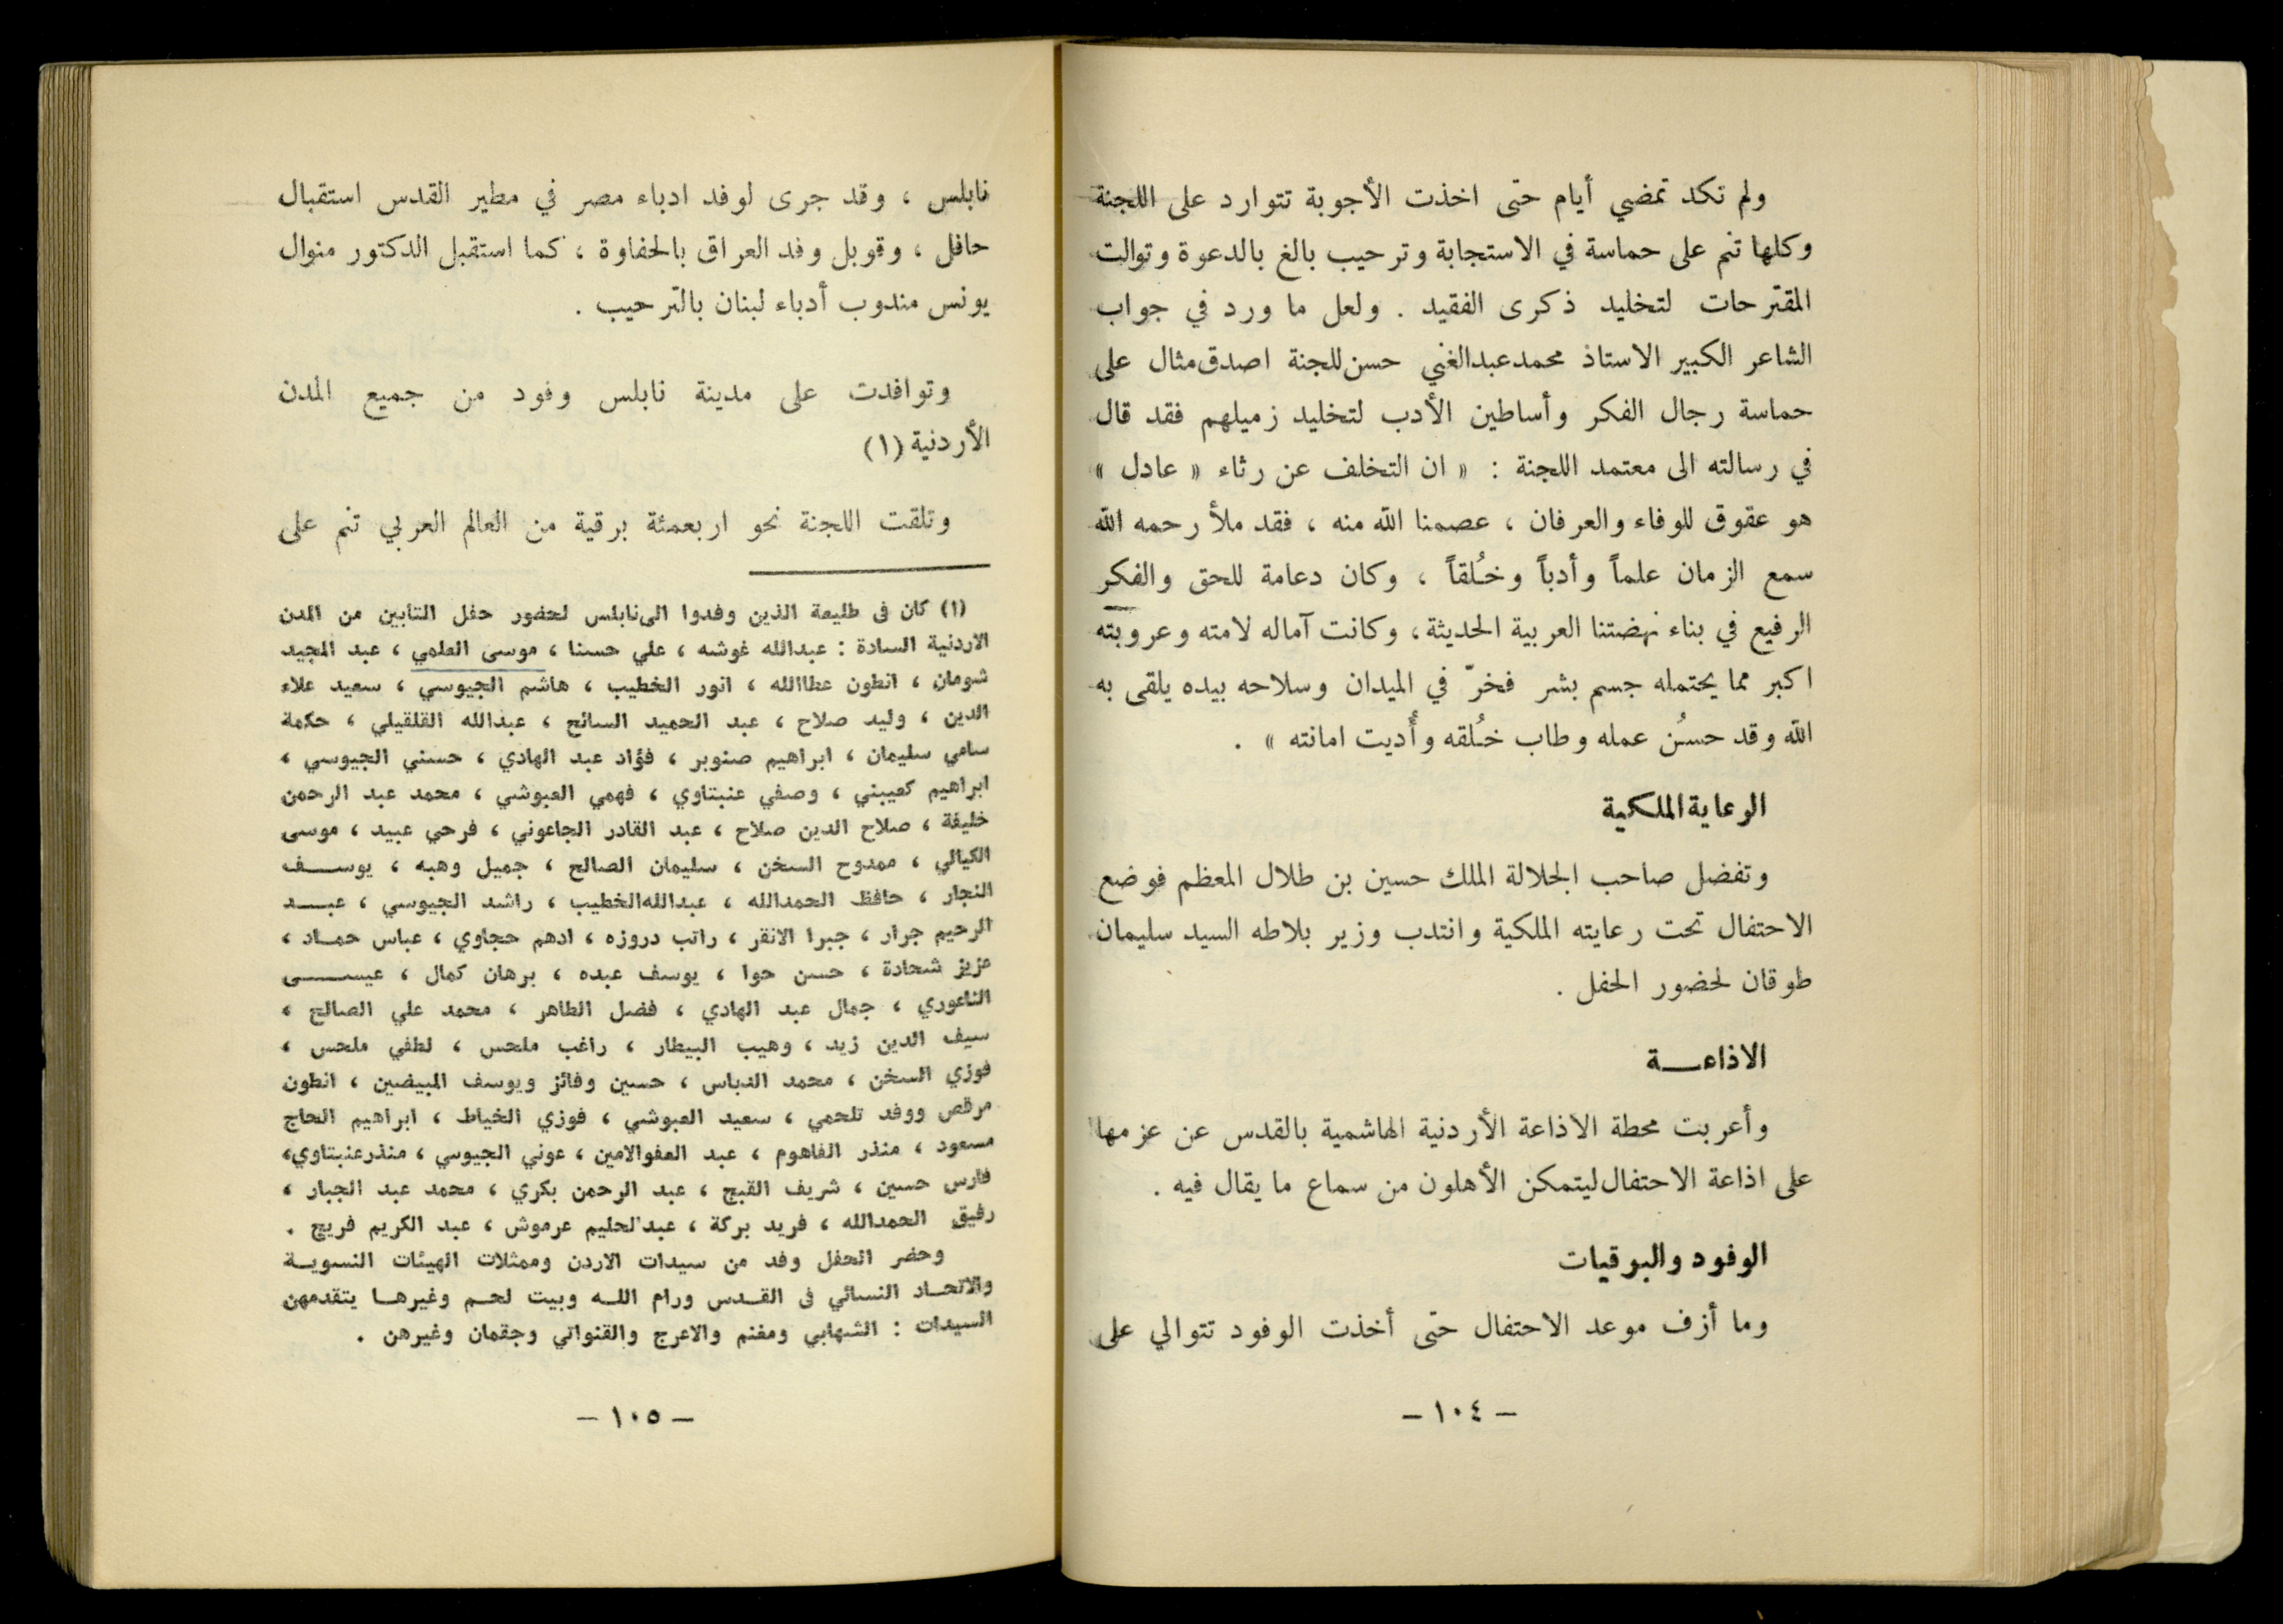 ولم تكد تمضي أيام حتى اخذت الأجوبة تتوارد على اللجنة
وكلها تنم على حماسة في الاستجابة وترحيب بالغ بالدعوة وتوالت
المقترحات لتخليد ذكرى الفقيد . ولعل ما ورد في جواب
الشاعر الكبير الاستاذ محمد عبد الغني حسن للجنة اصدق مثال على
حماسة رجال الفكر وأساطين الأدب لتخليد زميلهم فقد قال
في رسالته الى معتمد اللجنة : « ان التخلف عن رثاء « عادل »
هو عقوق للوفاء والعرفان ، عصمنا الله منه ، فقد ملأ رحمه الله
سمع الزمان علماً وأدباً وخُلقاً ، وكان دعامة للحق والفكر
الرفيع في بناء نهضتنا العربية الحديثة ، وكانت آماله لامته وعروبته
اكبر مما يحتمله جسم بشر فخرّ في الميدان وسلاحه بيده يلقى به
الله وقد حسُن عمله وطاب خُلقه وأُديت امانته » .
الرعاية الملكية
وتفضل صاحب الجلالة الملك حسين بن طلال المعظم فوضع
الاحتفال تحت رعايته الملكية وانتدب وزير بلاطه السيد سليمان
طوقان لحضور الحفل .
الاذاعـــة
وأعربت محطة الاذاعة الأردنية الهاشمية بالقدس عن عزمها
على اذاعة الاحتفال ليتمكن الأهلون من سماع ما يقال فيه .
الوفود والبرقيات
وما أزف موعد الاحتفال حتى أخذت الوفود تتوالي على
– ١٠٤ –
نابلس ، وقد جرى لوفد ادباء مصر في مطير القدس استقبال
حافل ، وقوبل وفد العراق بالحفاوة ، كما استقبل الدكتور منوال
يونس مندوب أدباء لبنان بالترحيب .
وتوافدت على مدينة نابلس وفود من جميع المدن
الأردنية (١)
وتلقت اللجنة نحو اربعمئة برقية من العالم العربي تنم على
(١) كان فى طليعة الذين وفدوا الى نابلس لحضور حفل التابين من المدن
الاردنية السادة : عبدالله غوشه ، علي حسنا ، موسى العلمي ، عبد المجيد
شومان ، انطون عطاالله ، انور الخطيب ، هاشم الجيوسي ، سعيد علاء
الدين ، وليد صلاح ، عبد الحميد السائح ، عبدالله القلقيلي ، حكمة
سامي سليمان ، ابراهيم صنوبر ، فؤاد عبد الهادي ، حسني الجيوسي ،
ابراهيم كعيبني ، وصفي عنبتاوي ، فهمي العبوشي ، محمد عبد الرحمن
خليفة ، صلاح الدين صلاح ، عبد القادر الجاعوني ، فرحي عبيد ، موسى
الكيالي ، ممدوح السخن ، سليمان الصالح ، جميل وهبه ، يوســف
النجار ، حافظ الحمدالله ، عبدالله الخطيب ، راشد الجيوسي ، عبـــد
الرحيم جرار ، جبرا الانقر ، راتب دروزه ، ادهم حجاوي ، عباس حمـاد ،
عزيز شحادة ، حسن حوا ، يوسف عبده ، برهان كمال ، عيســـى
الناعوري ، جمال عبد الهادي ، فضل الطاهر ، محمد علي الصالح ،
سيف الدين زيد ، وهيب البيطار ، راغب ملحس ، لطفي ملحس ،
فوزي السخن ، محمد الدباس ، حسين وفائز ويوسف المبيضين ، انطون
مرقص ووفد تلحمي ، سعيد العبوشي ، فوزي الخياط ، ابراهيم الحاج
مسعود ، منذر الفاهوم ، عبد العفو الامين ، عوني الجيوسي ، منذر عنبتاوي ،
فارس حسين ، شريف القبج ، عبد الرحمن بكري ، محمد عبد الجبار ،
رفيق الحمدالله ، فريد بركة ، عبدالحليم عرموش ، عبد الكريم فريج .
وحضر الحفل وفد من سيدات الاردن وممثلات الهيئات النسويـة
والاتحـاد النسائي فى القـدس ورام اللـه وبيت لحـم وغيرهـا يتقدمهن
السيدات : الشهابي ومغنم والاعرج والقنواتي وجقمان وغيرهن .
– ١٠٥ –